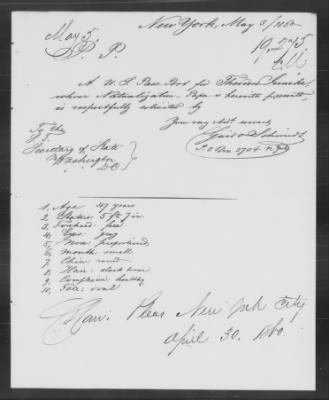 New York, May 3/1860
May 5.
19,275
P. P.
A U S Pass Port for
whose Naturalization Papers is herewith
is respectfully solicited by
Your very obdt servt
To the
Secretary of State
Washington
D.C.
P.O. Box 3704. N.Y.
1, Age 47 years
2, Stature 5 ft 7 in
3, Forehead: free
4, Eyes: gray
5, Nose proportioned
6, mouth small
7, Chin: round
8, Hair: dark brown
9, Complexion: healthy
10, Face: oval
New York City
April 30. 1860.